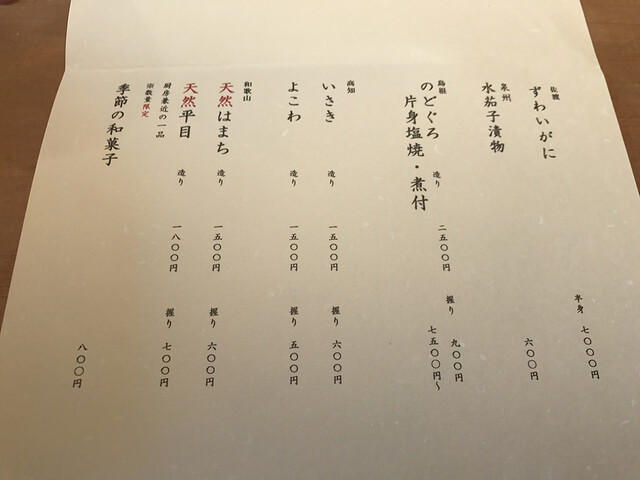 佐渡
ずわいがに
半身 七〇〇〇円
泉州
水茄子漬物
六〇〇円
島根
のどぐろ 造り 二五〇〇円 握り 九〇〇円
片身塩焼・煮付 七五〇〇円～
高知
いさき 造り 一五〇〇円 握り 六〇〇円
よこわ 造り 一五〇〇円 握り 五〇〇円
和歌山
天然はまち 造り 一五〇〇円 握り 六〇〇円
天然平目 造り 一八〇〇円 握り 七〇〇円
厨房兼近の一品
※数量限定
季節の和菓子 八〇〇円